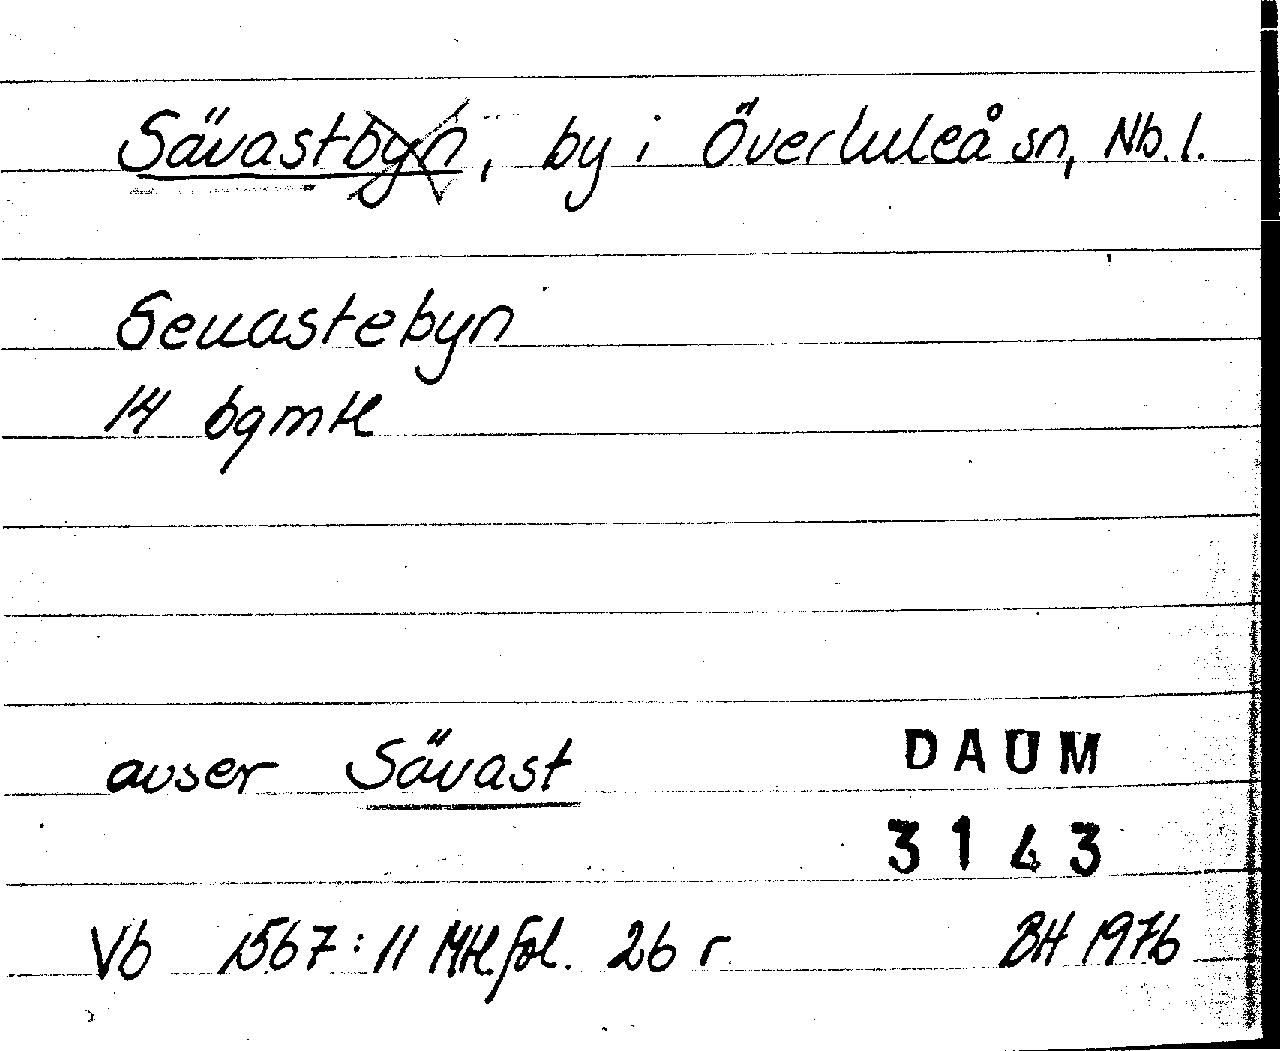 Sävastbyn, by i Överluleå sn, Nb. l.
Seuastebyn
14 bgmtl
avser Sävast
DAUM
3143
Vb 1567:11 Mtl.fol. 26 r
BH 1976